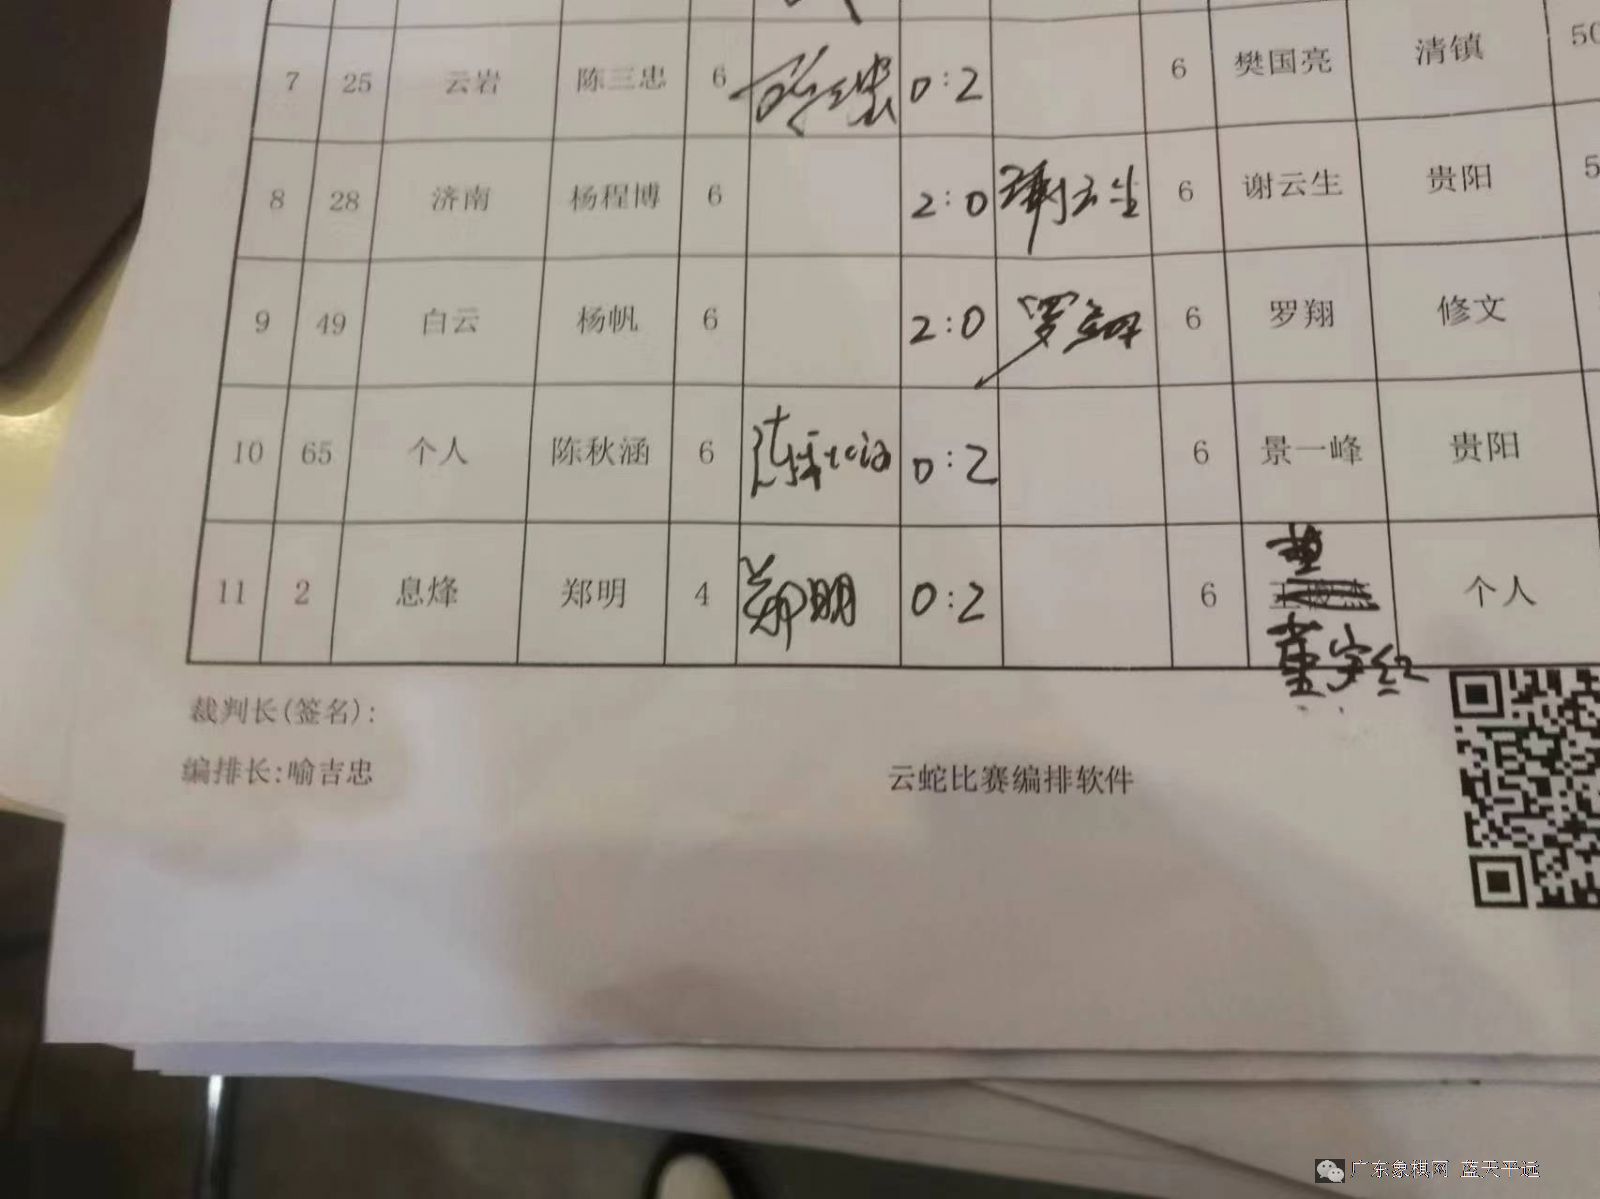 7 25 云岩 陈三忠 6 陈三忠 0:2 6 樊国亮 清镇 50
8 28 济南 杨程博 6 2:0 谢云生 6 谢云生 贵阳 5
9 49 白云 杨帆 6 2:0 罗翔 6 罗翔 修文
10 65 个人 陈秋涵 6 陈秋涵 0:2 6 景一峰 贵阳
11 2 息烽 郑明 4 郑明 0:2 6 个人
董宇红
裁判长(签名):
编排长:喻吉忠
云蛇比赛编排软件
广东象棋网 蓝天平远